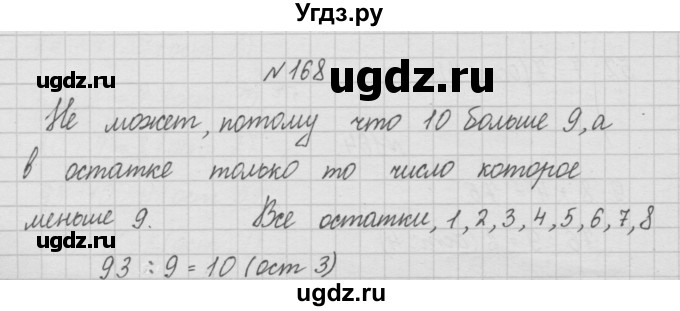 Угдз.ру
№168
ugdz.ru ugdz.ru ugdz.ru
Не может, потому что 10 больше 9, а
в остатке только то число которое
меньше 9. Все остатки, 1, 2, 3, 4, 5, 6, 7, 8
93 : 9 = 10 (ост 3)
ugdz.ru ugdz.ru
ugdz.ru